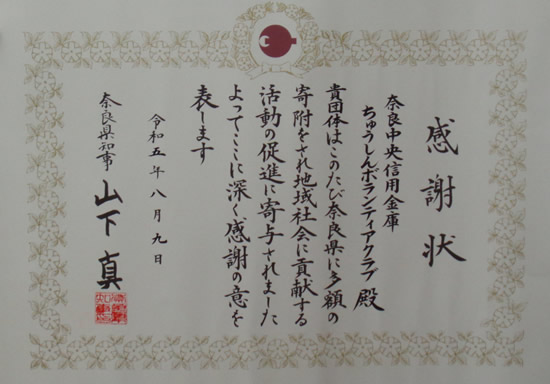 感謝状
奈良中央信用金庫
ちゅうしんボランティアクラブ 殿
貴団体はこのたび奈良県に多額の
寄附をされ地域社会に貢献する
活動の促進に寄与されました
よってここに深く感謝の意を
表します
令和五年八月九日
奈良県知事 山下 真